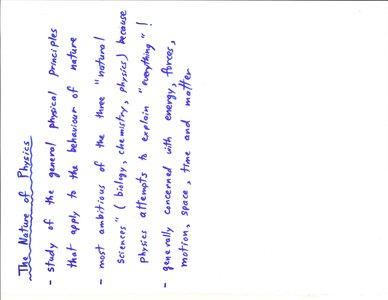 The Nature of Physics
- study of the general physical principles
that apply to the behaviour of nature
- most ambitious of the three "natural
Sciences" (biology, chemistry, physics) because
Physics attempts to explain "everything"!
- generally concerned with energy, forces,
motion, space, time and matter